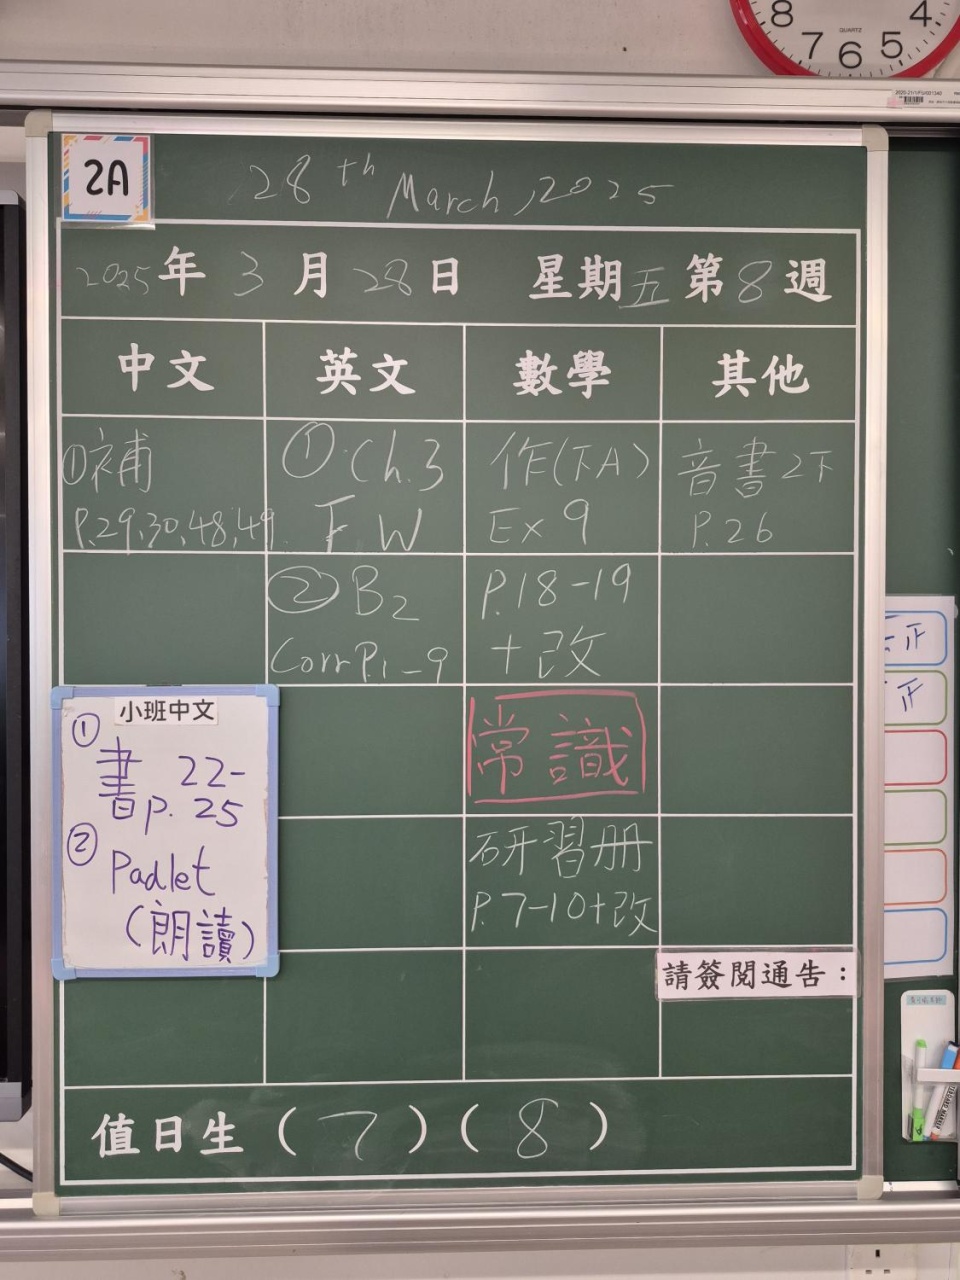 8 7 6 5 4
QUARTZ
2A
28th March, 2025
2025年3月28日 星期五 第8週
中文 英文 數學 其他
①補
P.29,30,48,49
① Ch.3
F.W
作(下A)
Ex 9
音書2下
P.26
② B2
Corr P.1-9
P.18-19
+改
小班中文
①
書 22-
p. 25
②
Padlet
(朗讀)
常識
研習册
P.7-10+改
請簽閱通告：
值日生（7）（8）